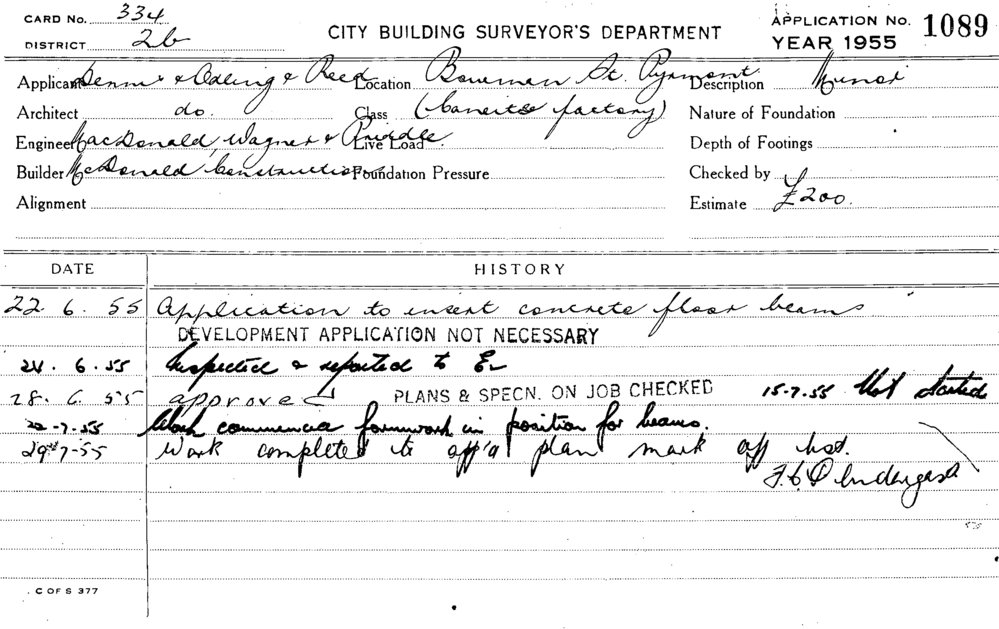 CARD No. 334
DISTRICT 2b
CITY BUILDING SURVEYOR'S DEPARTMENT
APPLICATION No. 1089
YEAR 1955
Applicant & Oxling & Reed Location Bowman St. Pyrmont Description Minor
Architect do. Class (Caneite factory) Nature of Foundation
Engineer MacDonald Wagner & Priddle Live Load Depth of Footings
Builder McDonald Constructions Foundation Pressure Checked by
Alignment Estimate £200.
DATE HISTORY
22. 6. 55 Application to insert concrete floor beams
DEVELOPMENT APPLICATION NOT NECESSARY
24. 6. 55 Inspected & reported to
28. 6. 55 approved PLANS & SPECN. ON JOB CHECKED 15-7-55 Not started
22-7-55 Work commenced formwork in position for beams.
29-7-55 Work completed to app'd plan mark off list.
C OF S 377